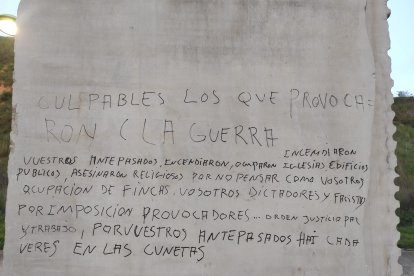 CULPABLES LOS QUE PROVOCA=
RON C LA GUERRA
INCENDIARON
VUESTROS ANTEPASADOS, ENCENDIARON, OCUPARON IGLESIAS EDIFICIOS
PUBLICOS, ASESINARON RELIGIOSOS POR NO PENSAR COMO VOSOTROS
OCUPACION DE FINCAS. VOSOTROS DICTADORES Y FASISTAS
POR IMPOSICION PROVOCADORES... ORDEN JUSTICIA PAZ
Y TRABAJO, POR VUESTROS ANTEPASADOS HAI CADA
VERES EN LAS CUNETAS